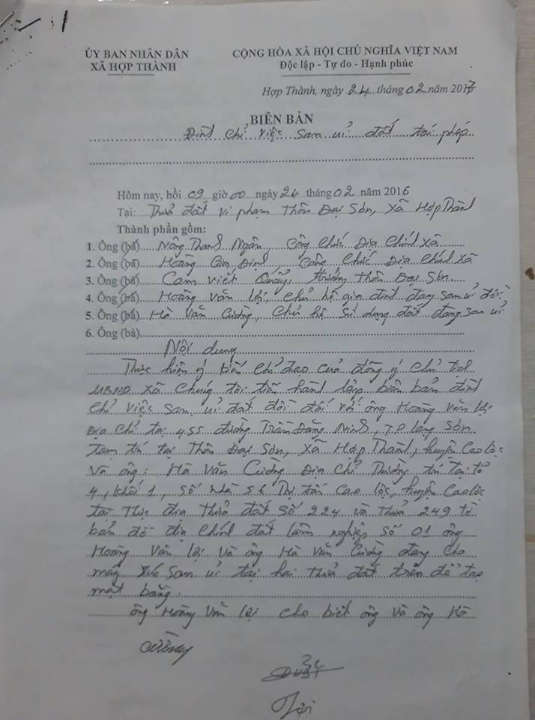 ỦY BAN NHÂN DÂN
XÃ HỢP THÀNH
CỘNG HÒA XÃ HỘI CHỦ NGHĨA VIỆT NAM
Độc lập - Tự do - Hạnh phúc
Hợp Thành, ngày 24 tháng 02 năm 2016
BIÊN BẢN
Đình chỉ việc san ủi đất trái phép
Hôm nay, hồi 09 giờ 00 ngày 24 tháng 02 năm 2016
Tại: Thửa đất vi phạm Thôn Đại Sơn, xã Hợp Thành
Thành phần gồm:
1. Ông (bà) Nông Thanh Ngân, công chức Địa chính xã
2. Ông (bà) Hoàng Đình, công chức Địa chính xã
3. Ông (bà) Cam Viết, trưởng thôn Đại Sơn
4. Ông (bà) Hoàng Văn Lợi, chủ hộ gia đình đang san ủi đất
5. Ông (bà) Hà Văn Cường, chủ hộ sử dụng đất đang san ủi
6. Ông (bà)
Nội dung
Thực hiện ý kiến chỉ đạo của đồng chí chủ tịch
UBND xã chúng tôi tiến hành lập biên bản đình
chỉ việc san ủi đất đồi đối với ông Hoàng Văn Lợi
Địa chỉ tại 455 đường Trần Đăng Ninh, T.P Lạng Sơn
tạm trú tại Thôn Đại Sơn, xã Hợp Thành, huyện Cao Lộc
Và ông: Hà Văn Cường Địa chỉ Thường trú tại tổ
4, khối 1, số nhà 56 Thị trấn Cao Lộc, huyện Cao Lộc
tại thửa đất số 224 và thửa 249 tờ
bản đồ địa chính đất lâm nghiệp số 01 ông
Hoàng Văn Lợi và ông Hà Văn Cường đang cho
máy xúc san ủi tại hai thửa đất trên để tạo
mặt bằng.
ông Hoàng Văn Lợi cho biết ông và ông Hà
Cường
Lợi